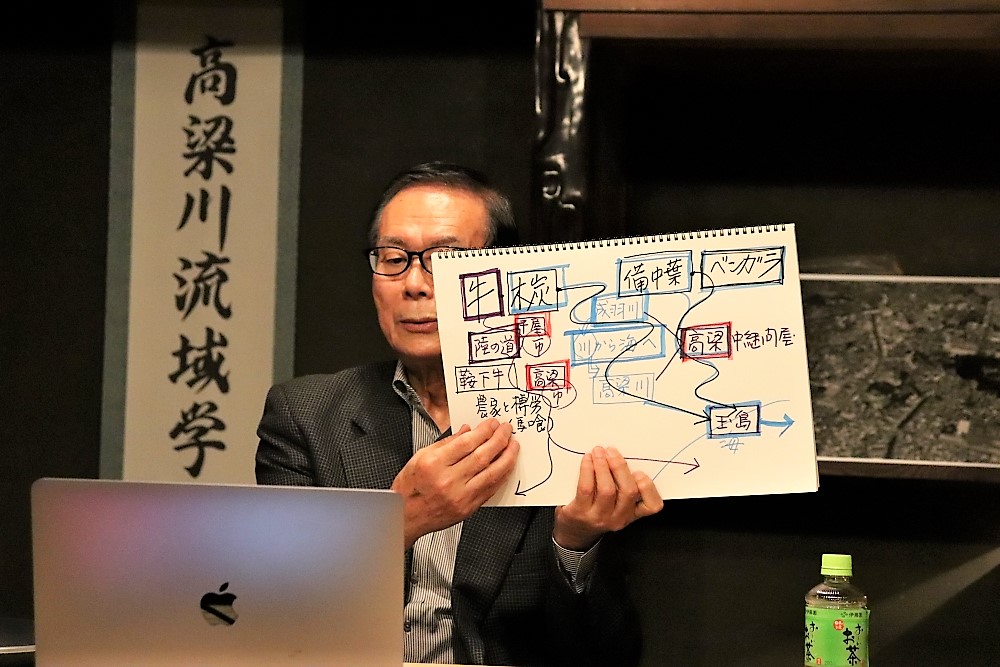 高梁川流域学
牛
木炭
備中葉
ベンガラ
成羽川
子屋
市
陸の道
川から海へ
高梁
中継問屋
鞍下牛
高梁
市
高梁川
農家と博労
(馬喰)
玉島
海
伊藤園
お〜い
お茶